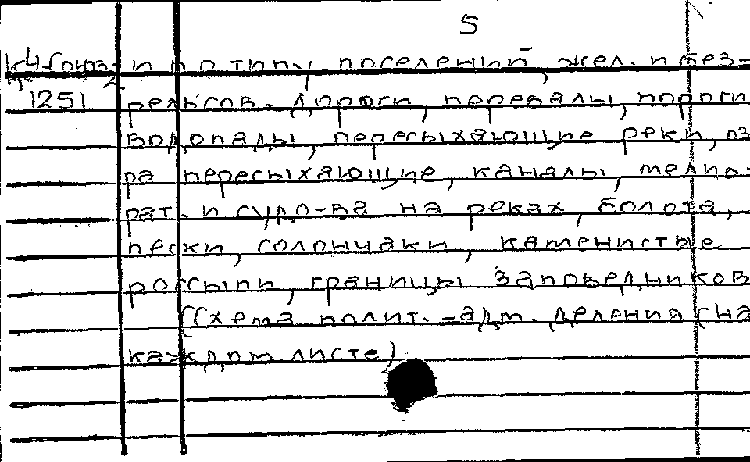 5
К4-Союз- и по типу поселений, жел. и без-
1251 рельсов. дороги, перевалы, пороги
водопады, пересыхающие реки, оз
ра пересыхающие, каналы, мелио-
рат. и судо-ва на реках, болота,
пески, солончаки, каменистые
россыпи, границы заповедников
(Схема полит.-адм. деления (на
каждом листе)